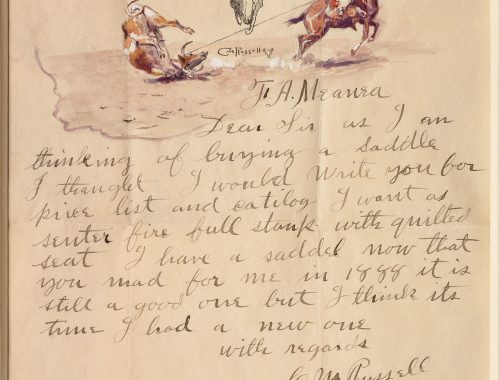 CMRussell
F. A. Meanea
Dear Sir as I am
thinking of buying a saddle
I thought I would write you for
price list and catilog I want as
senter fire full stanp with quilted
seat I have a saddel now that
you mad for me in 1888 it is
still a good one but I think its
time I had a new one
with regards
C M Russell